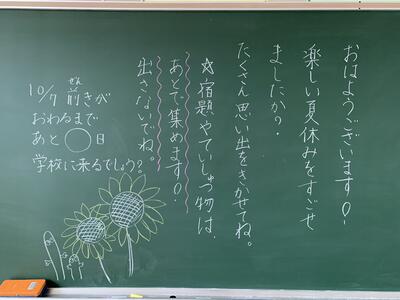 おはようございます!
楽しい夏休みをすごせ
ましたか?
たくさん思い出をきかせてね。
☆宿題やていしゅつ物は、
あとで集めます!
出さないでね。
10/7 前きが
ぜん
おわるまで
あと◯日
学校に来るでしょう?